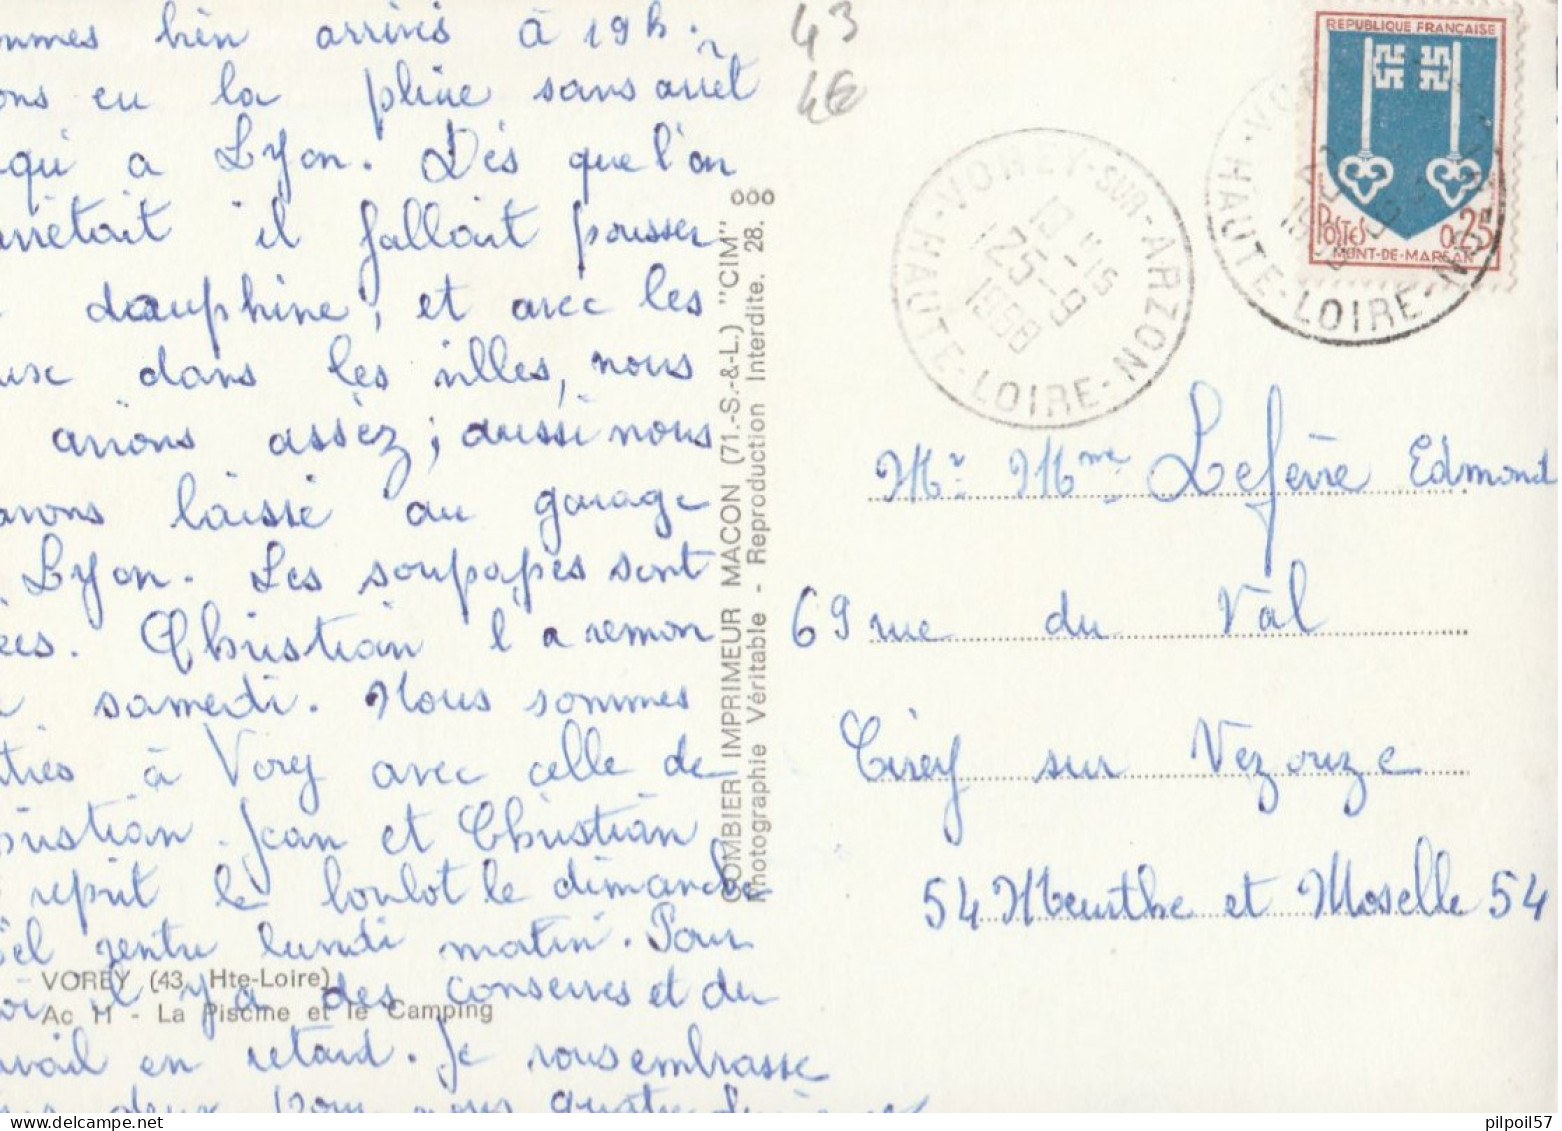 ommes bien arrivés à 19h.
ons eu la pluie sans arrêt
qu'a Lyon. Dès que l'on
arrêtait il fallait pousser
dauphine, et avec les
dans les villes, nous
avions assez; aussi nous
avons laissé au garage
Lyon. Les soupapes sont
ées. Christian l'a remon
samedi. Nous sommes
trés à Vorey avec celle de
hristian. Jean et Christian
reprit le boulot le dimanche
ël rentre lundi matin. Pour
oi il y a des conserves et du
avail en retard. Je vous embrasse
deux pour nous quatre
VOREY (43, Hte-Loire)
Ac 11 - La Piscine et le Camping
COMBIER IMPRIMEUR MACON (71.-S.-&-L.) "CIM"
Photographie Véritable - Reproduction Interdite. 28.
43
4€
VOREY-SUR-ARZON
HAUTE-LOIRE
25-9
1968
REPUBLIQUE FRANÇAISE
POSTES
0,25
MONT-DE-MARSAN
HAUTE-LOIRE
Mr. Mme. Lefèvre Edmond
69 rue du Val
Cirey sur Vezouze
54 Meurthe et Moselle 54
pilpoil57